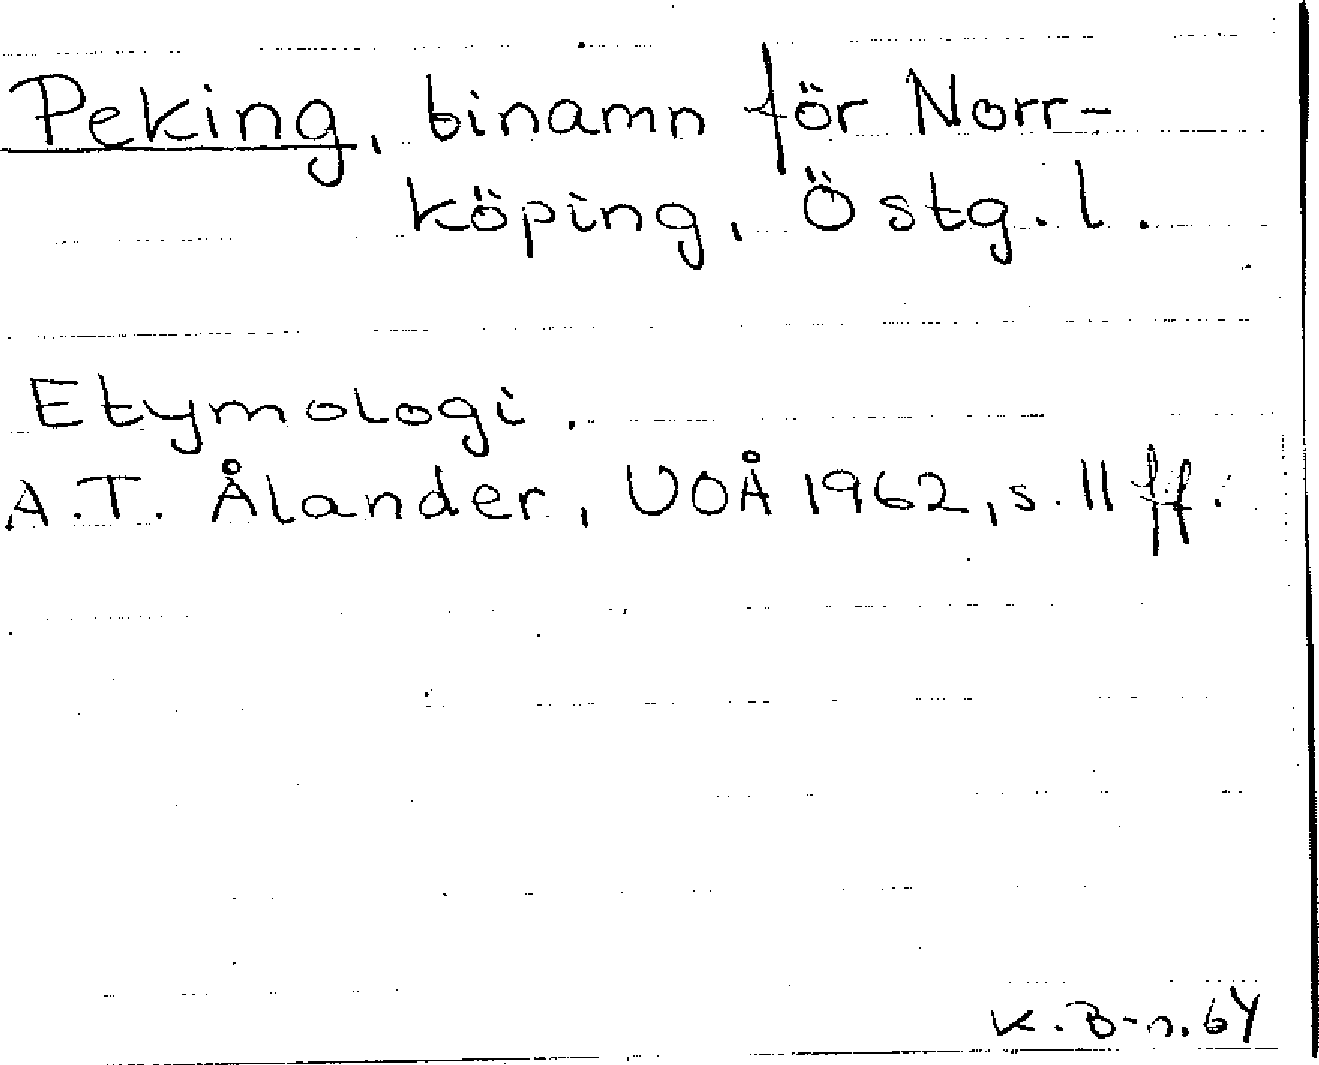 Peking, binamn för Norr-
köping, Östg. l.
Etymologi.
A.T. Ålander, VOÅ 1962, s. 11 ff.
K. B-n. 64